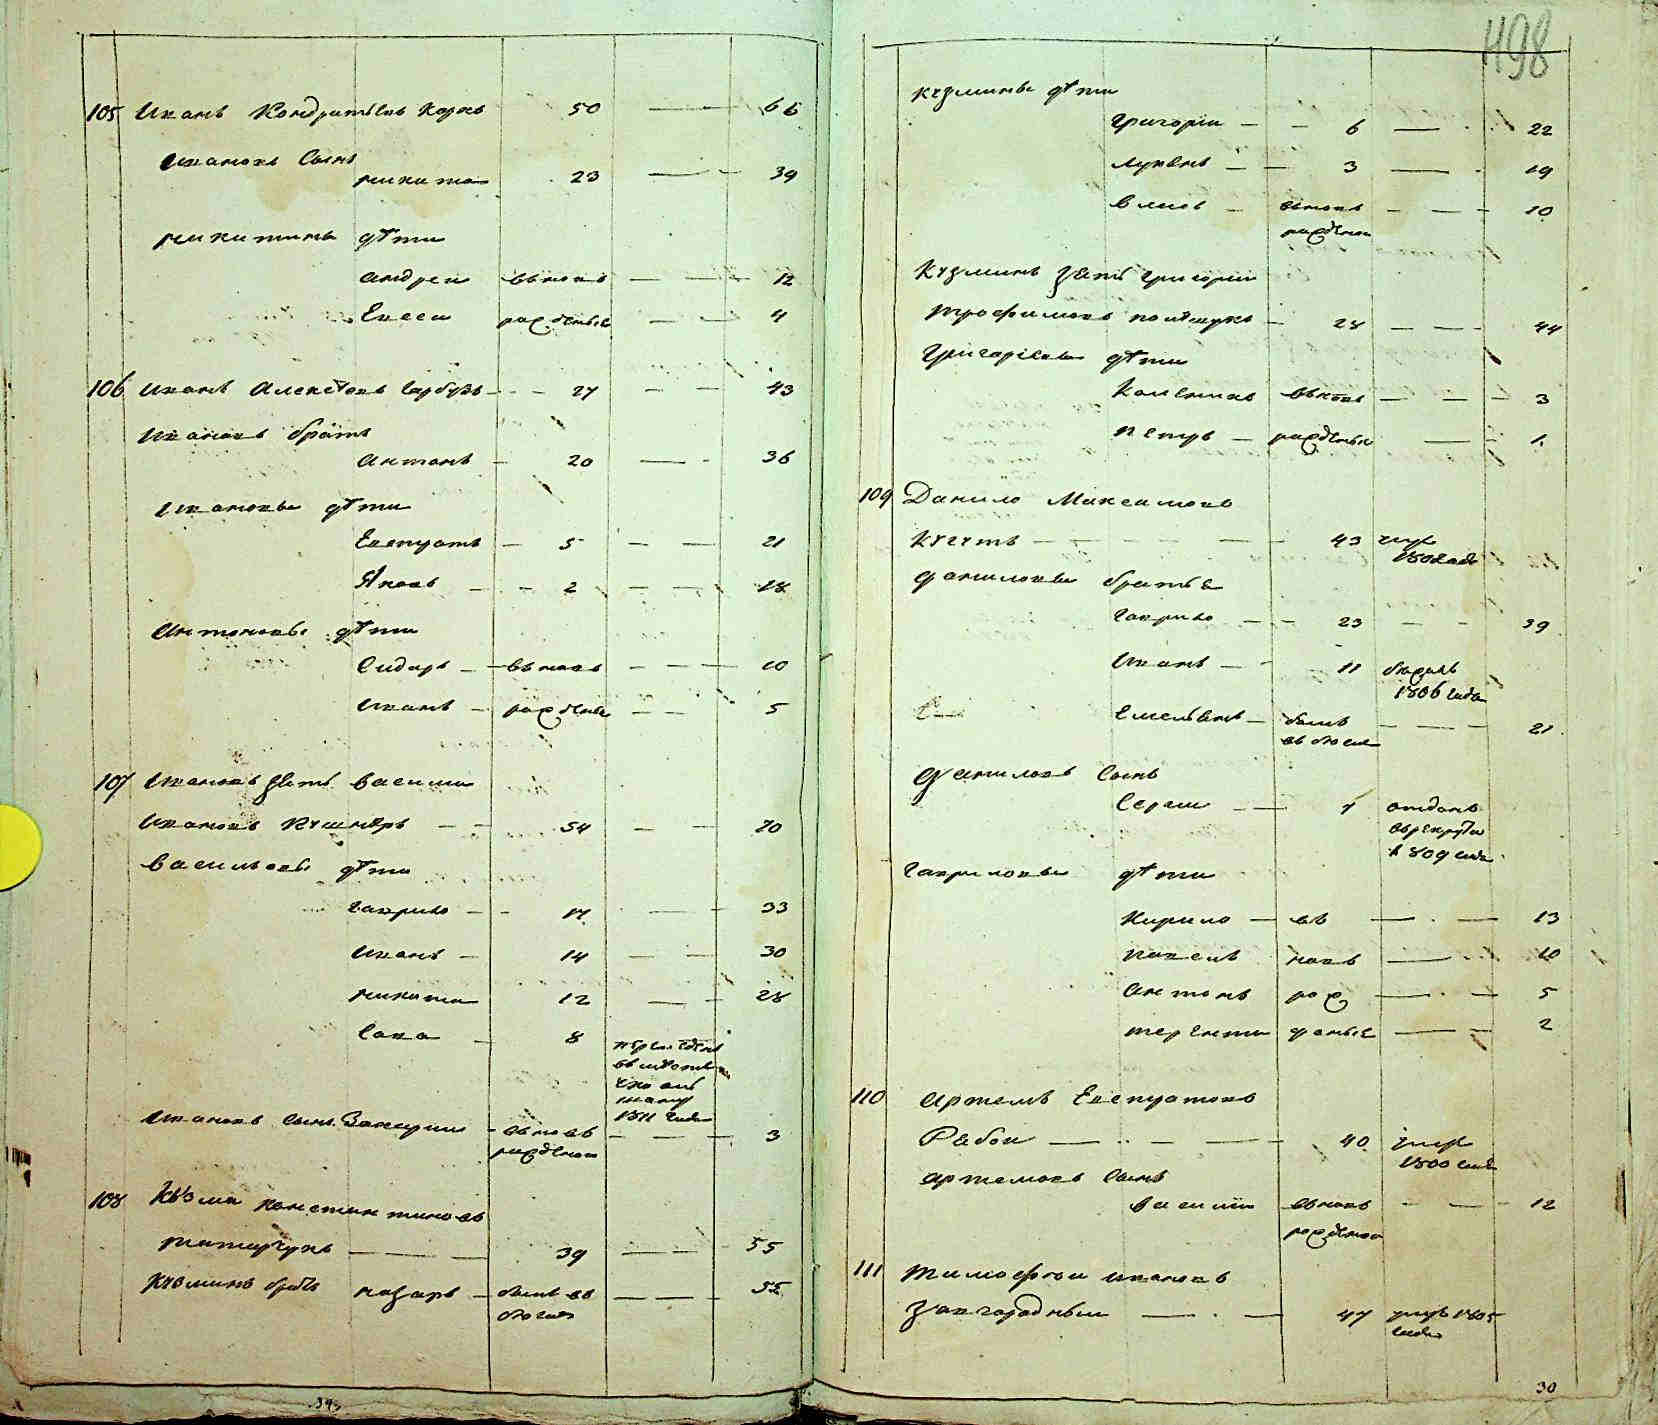 498
105 Иванъ Кондратьевъ Коржъ 50 — 66
Ивановъ Сынъ
микита 23 — 39
микитины дѣти
андреи вьновь — 12
Евсеи рожденые — 4
106 иванъ Алексѣевъ Гарбузъ — 27 — 43
ивановъ братъ
антонъ — 20 — 36
ивановы дѣти
Евстратъ — 5 — 21
Яковъ — 2 — 18
антоновы дѣти
Сидоръ — вьновь — 10
иванъ — рожденые — 5
107 ивановъ зять василий
ивановъ Кушнѣръ — 54 — 70
васильевы дѣти
гаврило — 17 — 33
иванъ — 14 — 30
микита 12 — 28
Сава — 8
1811 года
ивановъ сынъ Захарий — вьновь рожденой — 3
108 Кузма константиновъ
татарчукъ — 39 — 55
Кузминъ братъ назаръ — былъ въ бѣгахъ — 52
343
кузмины дѣти
григорий — 6 — 22
лукянъ — 3 — 19
власъ — вьновь рожденой — 10
Кузминъ зять григорий
трофимовъ — 28 — 44
григориевы дѣти
Каленикъ вьновь — 3
петръ — рожденые — 1
109 Данило Максимовъ
— 43 умре 1802 года
даниловы братья
гаврило — 23 — 39
иванъ — 11 бѣжалъ 1806 года
Емельянъ — былъ въ бѣгахъ — 21
даниловъ сынъ
Сергий — 1 отданъ в рекруты в 1809 году
гавриловы дѣти
Кирило — въ — 13
павелъ новь — 10
антонъ рож — 5
терентий деные — 2
110 артемъ Евстратовъ
Рябой — 40 умре 1800 года
артемовъ сынъ
василий вьновь рожденой — 12
111 тимофѣи ивановъ
Завгородный — 47 умре 1805 года
30